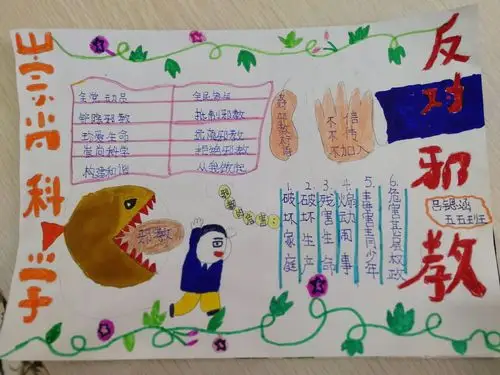 崇尚科学
反对邪教
全党动员
全民参与
铲除邪教
抵制邪教
珍爱生命
远离邪教
崇尚科学
拒绝邪教
构建和谐
从我做起
不信
不传
不加入
邪教
邪教的危害:
1.破坏家庭
2.破坏生产
3.残害生命
4.煽动闹事
5.毒害青少年
6.危害基层权政
五五班